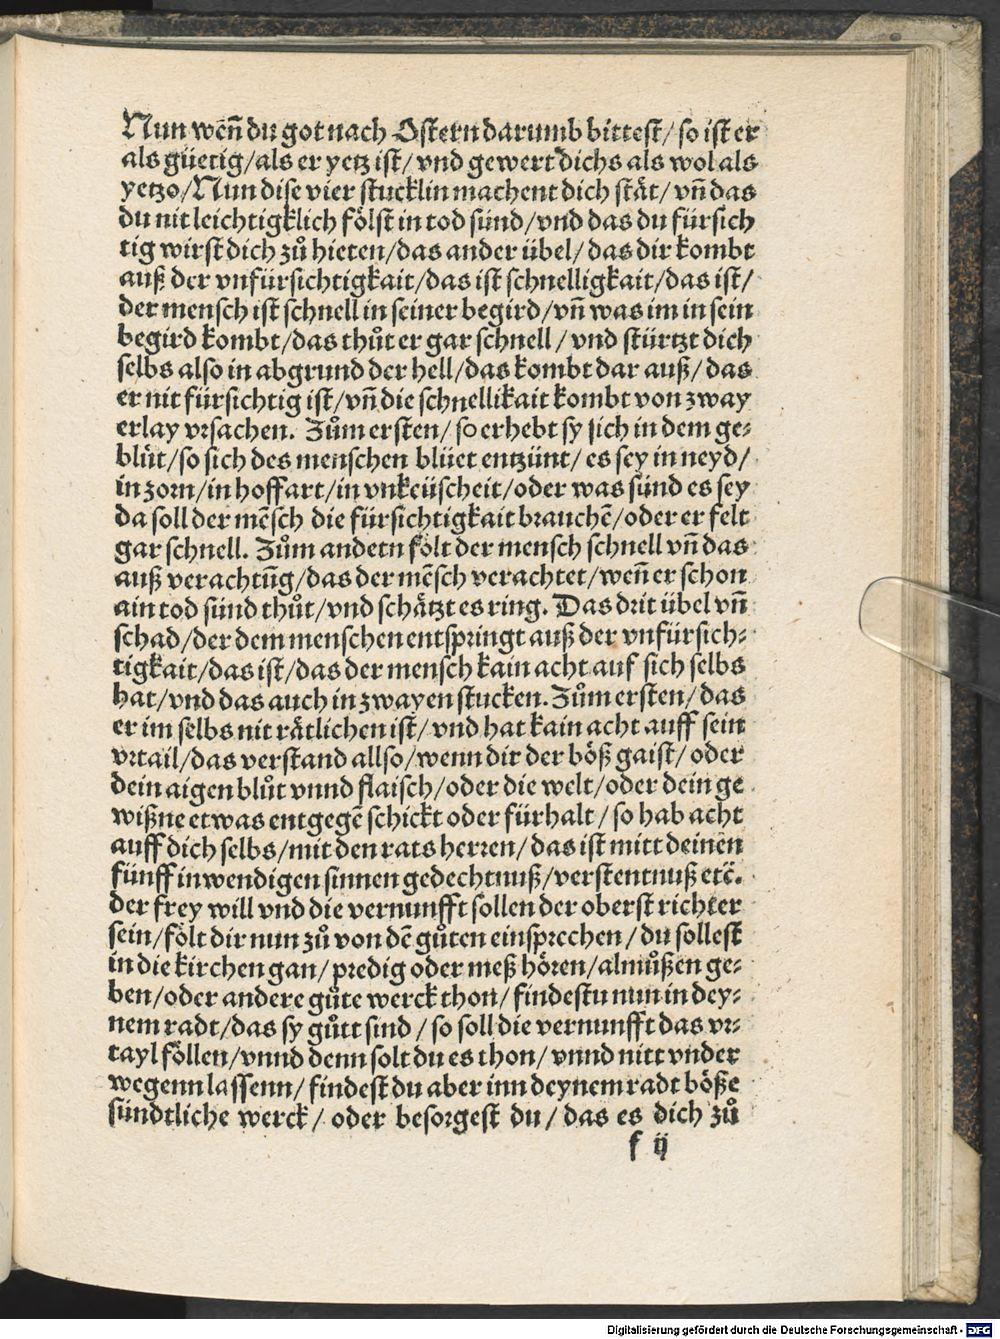 Nun weñ du got nach Ostern darumb bittest/ so ist er
als güetig/als er yetz ist/ vnd gewert dichs als wol als
yetzo/Nun dise vier stucklin machent dich stät/ vñ das
du nit leichtigklich fölst in tod sünd/vnd das du fürsich
tig wirst dich zů hieten/das ander übel/ das dir kombt
auß der vnfürsichtigkait/das ist schnelligkait/das ist/
der mensch ist schnell in seiner begird/vñ was im in sein
begird kombt/das thůt er gar schnell/ vnd stürtzt dich
selbs also in abgrund der hell/das kombt dar auß/ das
er nit fürsichtig ist/vñ die schnellikait kombt von zway
erlay vrsachen. Zům ersten/ so erhebt sy sich in dem ge-
blüt/so sich des menschen blüet entzünt/ es sey in neyd/
in zorn/in hoffart/in vnkeüscheit/oder was sünd es sey
da soll der mẽsch die fürsichtigkait brauchẽ/oder er felt
gar schnell. Zům andern fölt der mensch schnell vñ das
auß verachtũg/das der mẽsch verachtet/weñ er schon
ain tod sünd thůt/vnd schätzt es ring. Das drit übel vñ
schad/der dem menschen entspringt auß der vnfürsich-
tigkait/das ist/das der mensch kain acht auf sich selbs
hat/vnd das auch in zwayen stucken. Zům ersten/ das
er im selbs nit rätlichen ist/ vnd hat kain acht auff sein
vrtail/das verstand allso/wenn dir der böß gaist/ oder
dein aigen blůt vnnd flaisch/oder die welt/oder dein ge
wißne etwas entgegẽ schickt oder fürhalt/ so hab acht
auff dich selbs/mit den rats herren/das ist mitt deinen
fünff inwendigen sinnen gedechtnuß/verstentnuß etc̃.
der frey will vnd die vernunfft sollen der oberst richter
sein/fölt dir nun zů von dẽ gůten einsprechen/du sollest
in die kirchen gan/predig oder meß hören/almůßen ge-
ben/oder andere gůte werck thon/findestu nun in dey-
nem radt/das sy gůtt sind/so soll die vernunfft das vr-
tayl föllen/vnnd denn solt du es thon/ vnnd nitt vnder
wegenn lassenn/findest du aber inn deynem radt böße
sündtliche werck/ oder besorgest du/das es dich zů
f ij
Digitalisierung gefördert durch die Deutsche Forschungsgemeinschaft - DFG